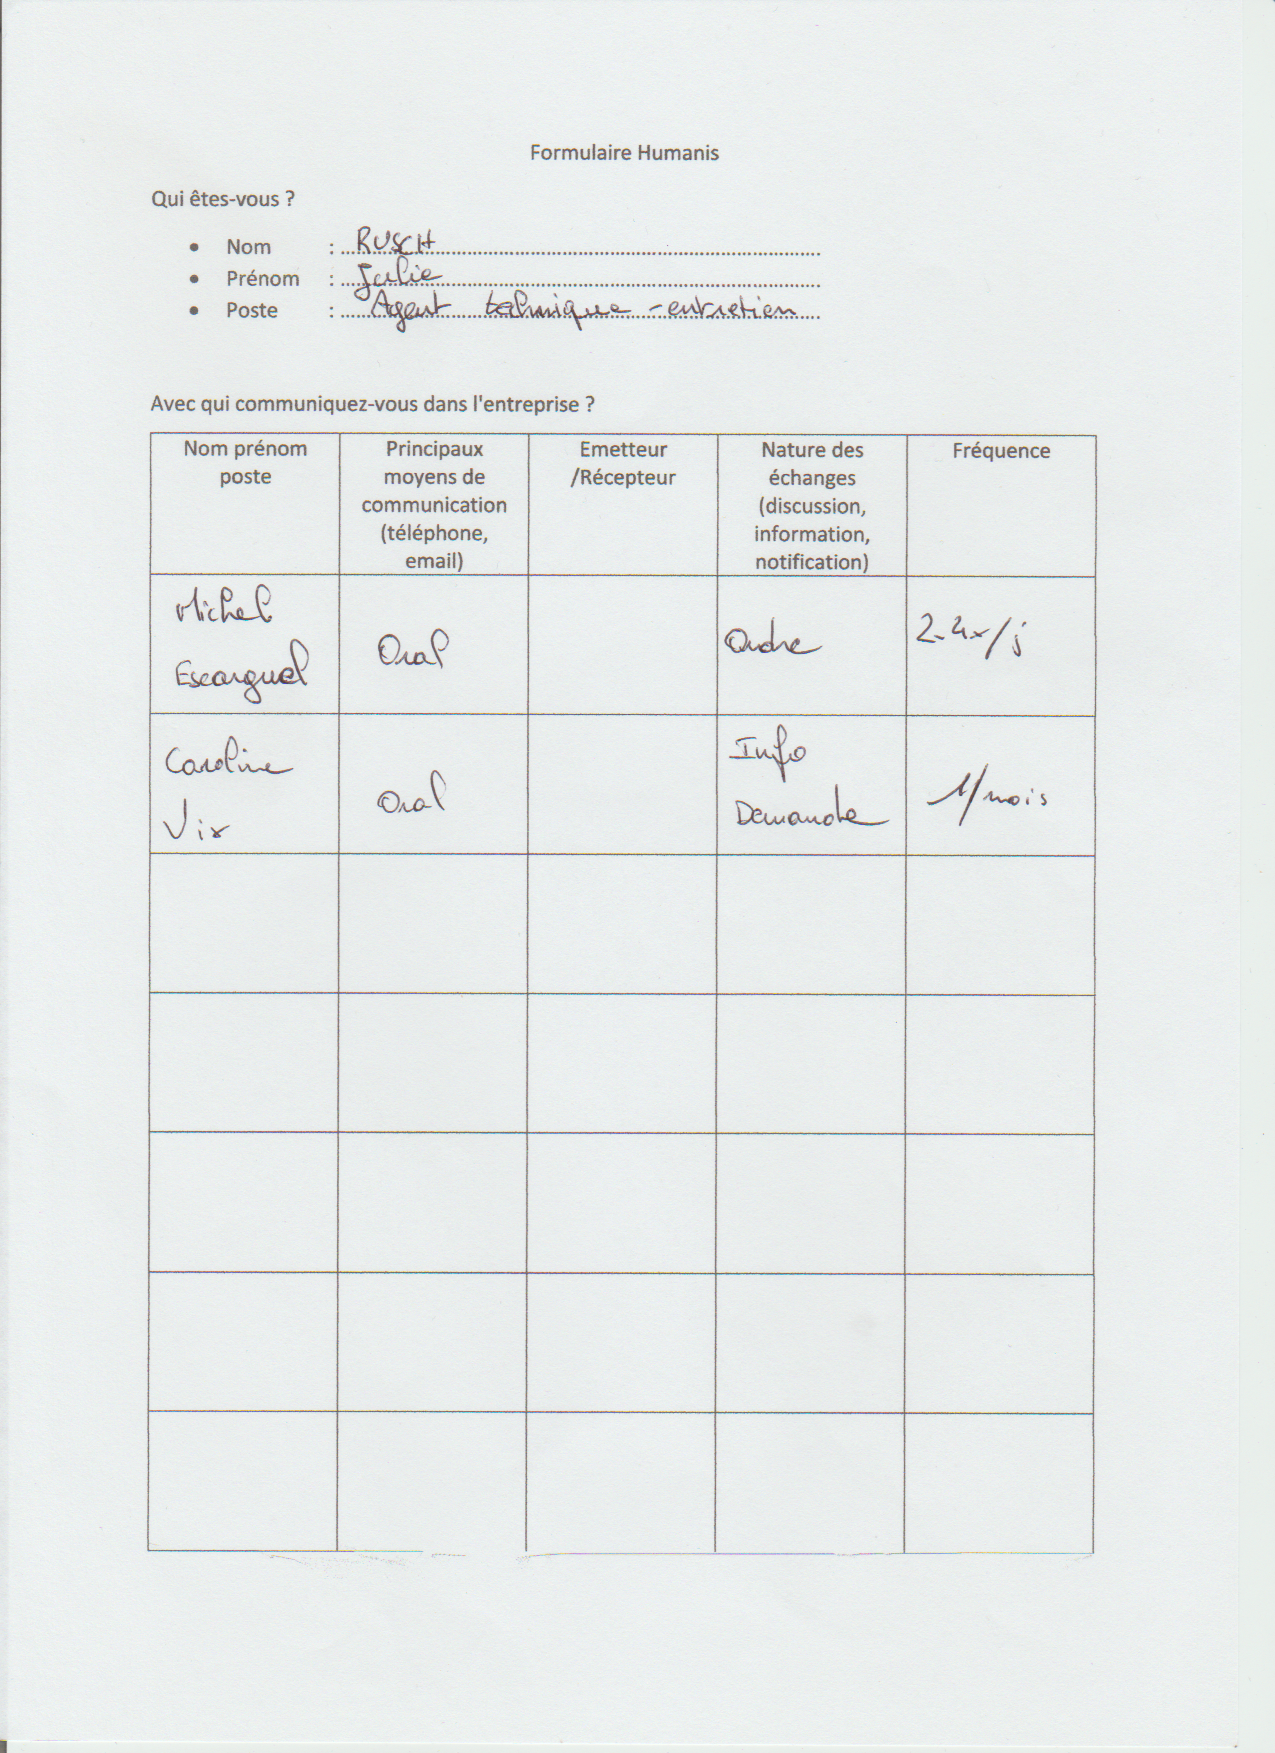 Formulaire Humanis
Qui êtes-vous ?
• Nom : RUSCH
• Prénom : Julie
• Poste : Agent technique - entretien
Avec qui communiquez-vous dans l'entreprise ?
Nom prénom
poste
Principaux
moyens de
communication
(téléphone,
email)
Emetteur
/Récepteur
Nature des
échanges
(discussion,
information,
notification)
Fréquence
Michel
Escarguel
Oral
Ordre
2-4x/j
Caroline
Vix
Oral
Info
Demande
1/mois